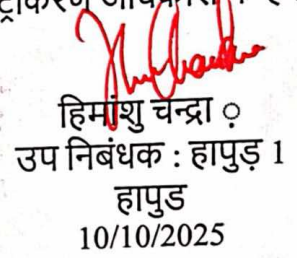 हिमांशु चन्द्रा ़
उप निबंधक : हापुड़ 1
हापुड
10/10/2025